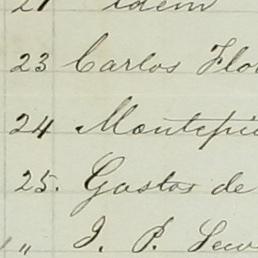 21 idem
23 Carlos Flo
24 Montepi
25. Gastos de
" J. P.